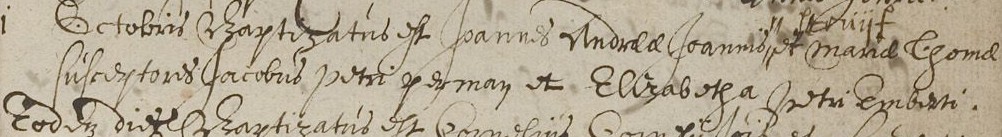 Octobris Baptizatus est Joannes Andreæ Joannis et mariæ Thomæ
susceptores Jacobus petri perman et Elizabetha petri Emberti.
Eodem die Baptizatus est Cornelius